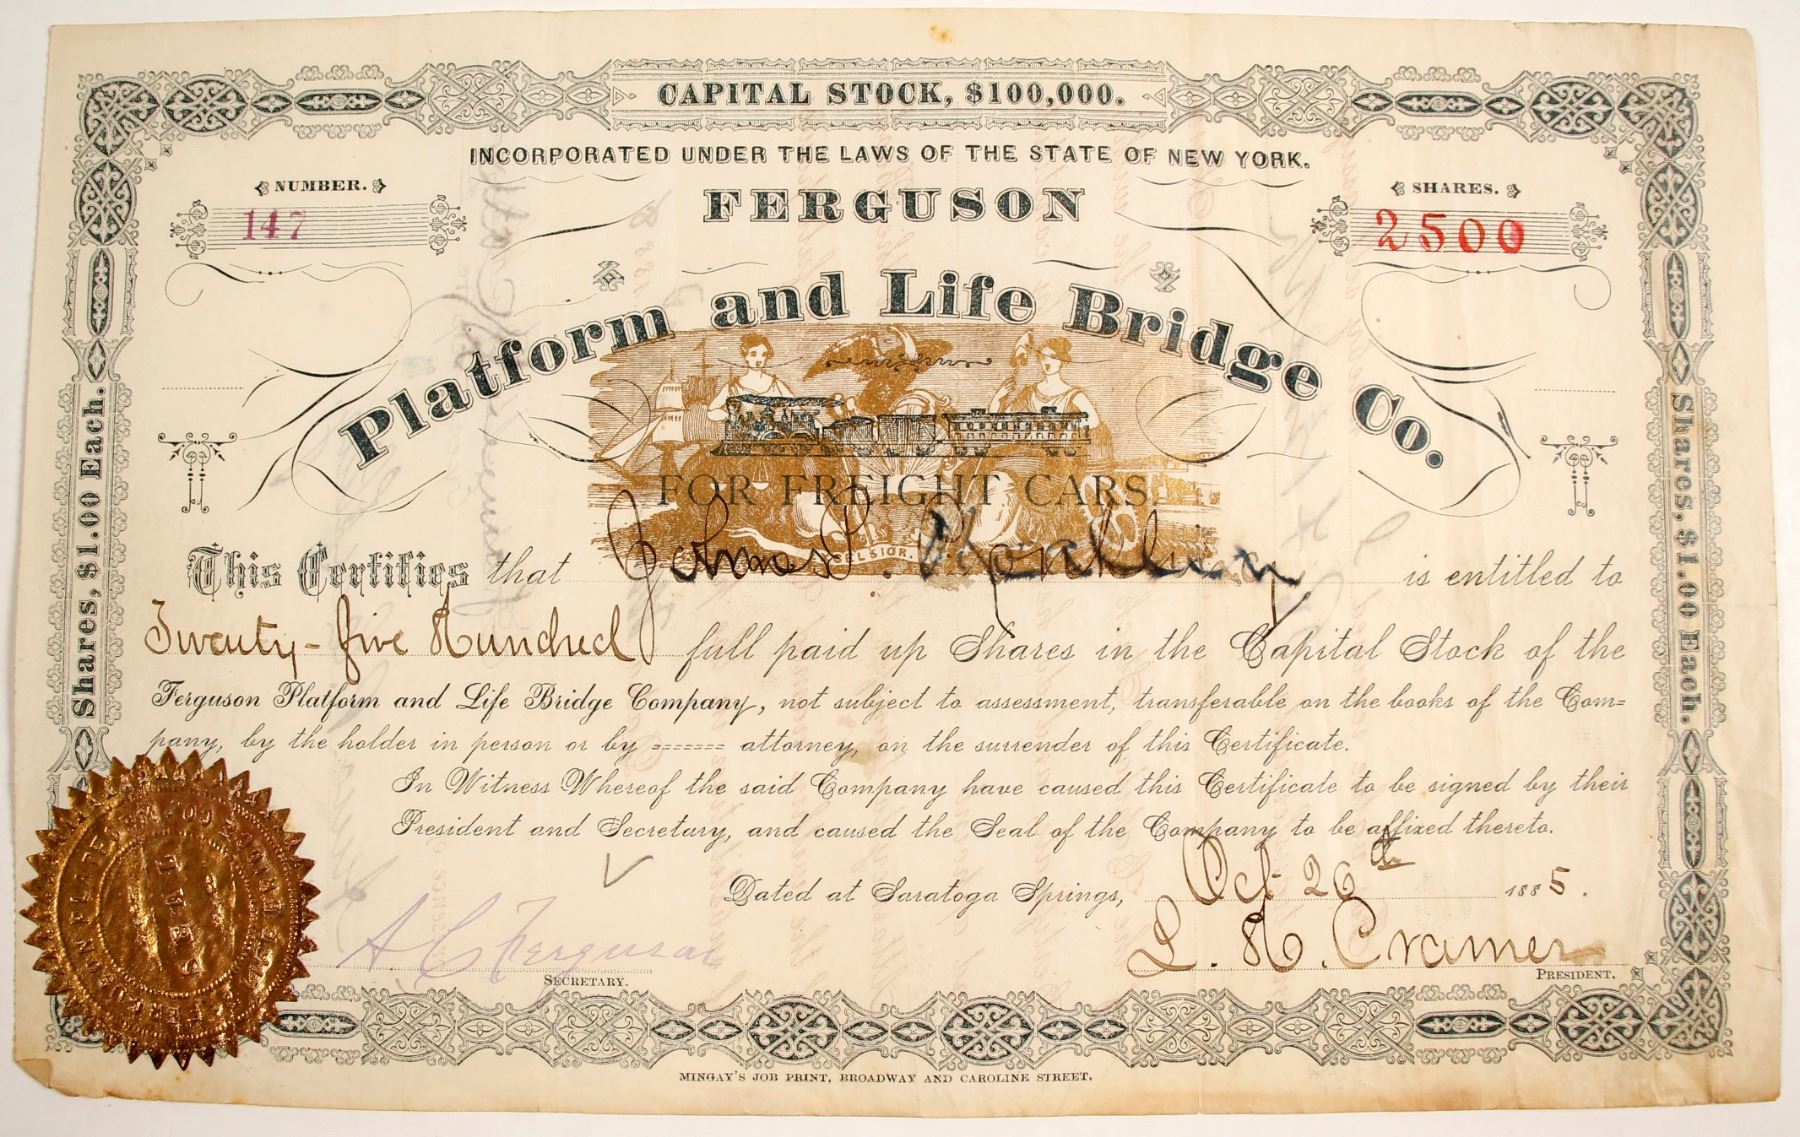 CAPITAL STOCK, $100,000.
INCORPORATED UNDER THE LAWS OF THE STATE OF NEW YORK.
NUMBER.
147
SHARES.
2500
FERGUSON
Platform and Life Bridge Co.
FOR FREIGHT CARS.
This Certifies that is entitled to
Twenty-five Hundred full paid up Shares in the Capital Stock of the
Ferguson Platform and Life Bridge Company, not subject to assessment, transferable on the books of the Com=
pany, by the holder in person or by ======= attorney, on the surrender of this Certificate.
In Witness Whereof the said Company have caused this Certificate to be signed by their
President and Secretary, and caused the Seal of the Company to be affixed thereto.
Dated at Saratoga Springs, Oct 26th 1885.
A C Ferguson
SECRETARY.
L. H. Cramer
PRESIDENT.
MINGAY'S JOB PRINT, BROADWAY AND CAROLINE STREET.
Shares, $1.00 Each.
Shares, $1.00 Each.